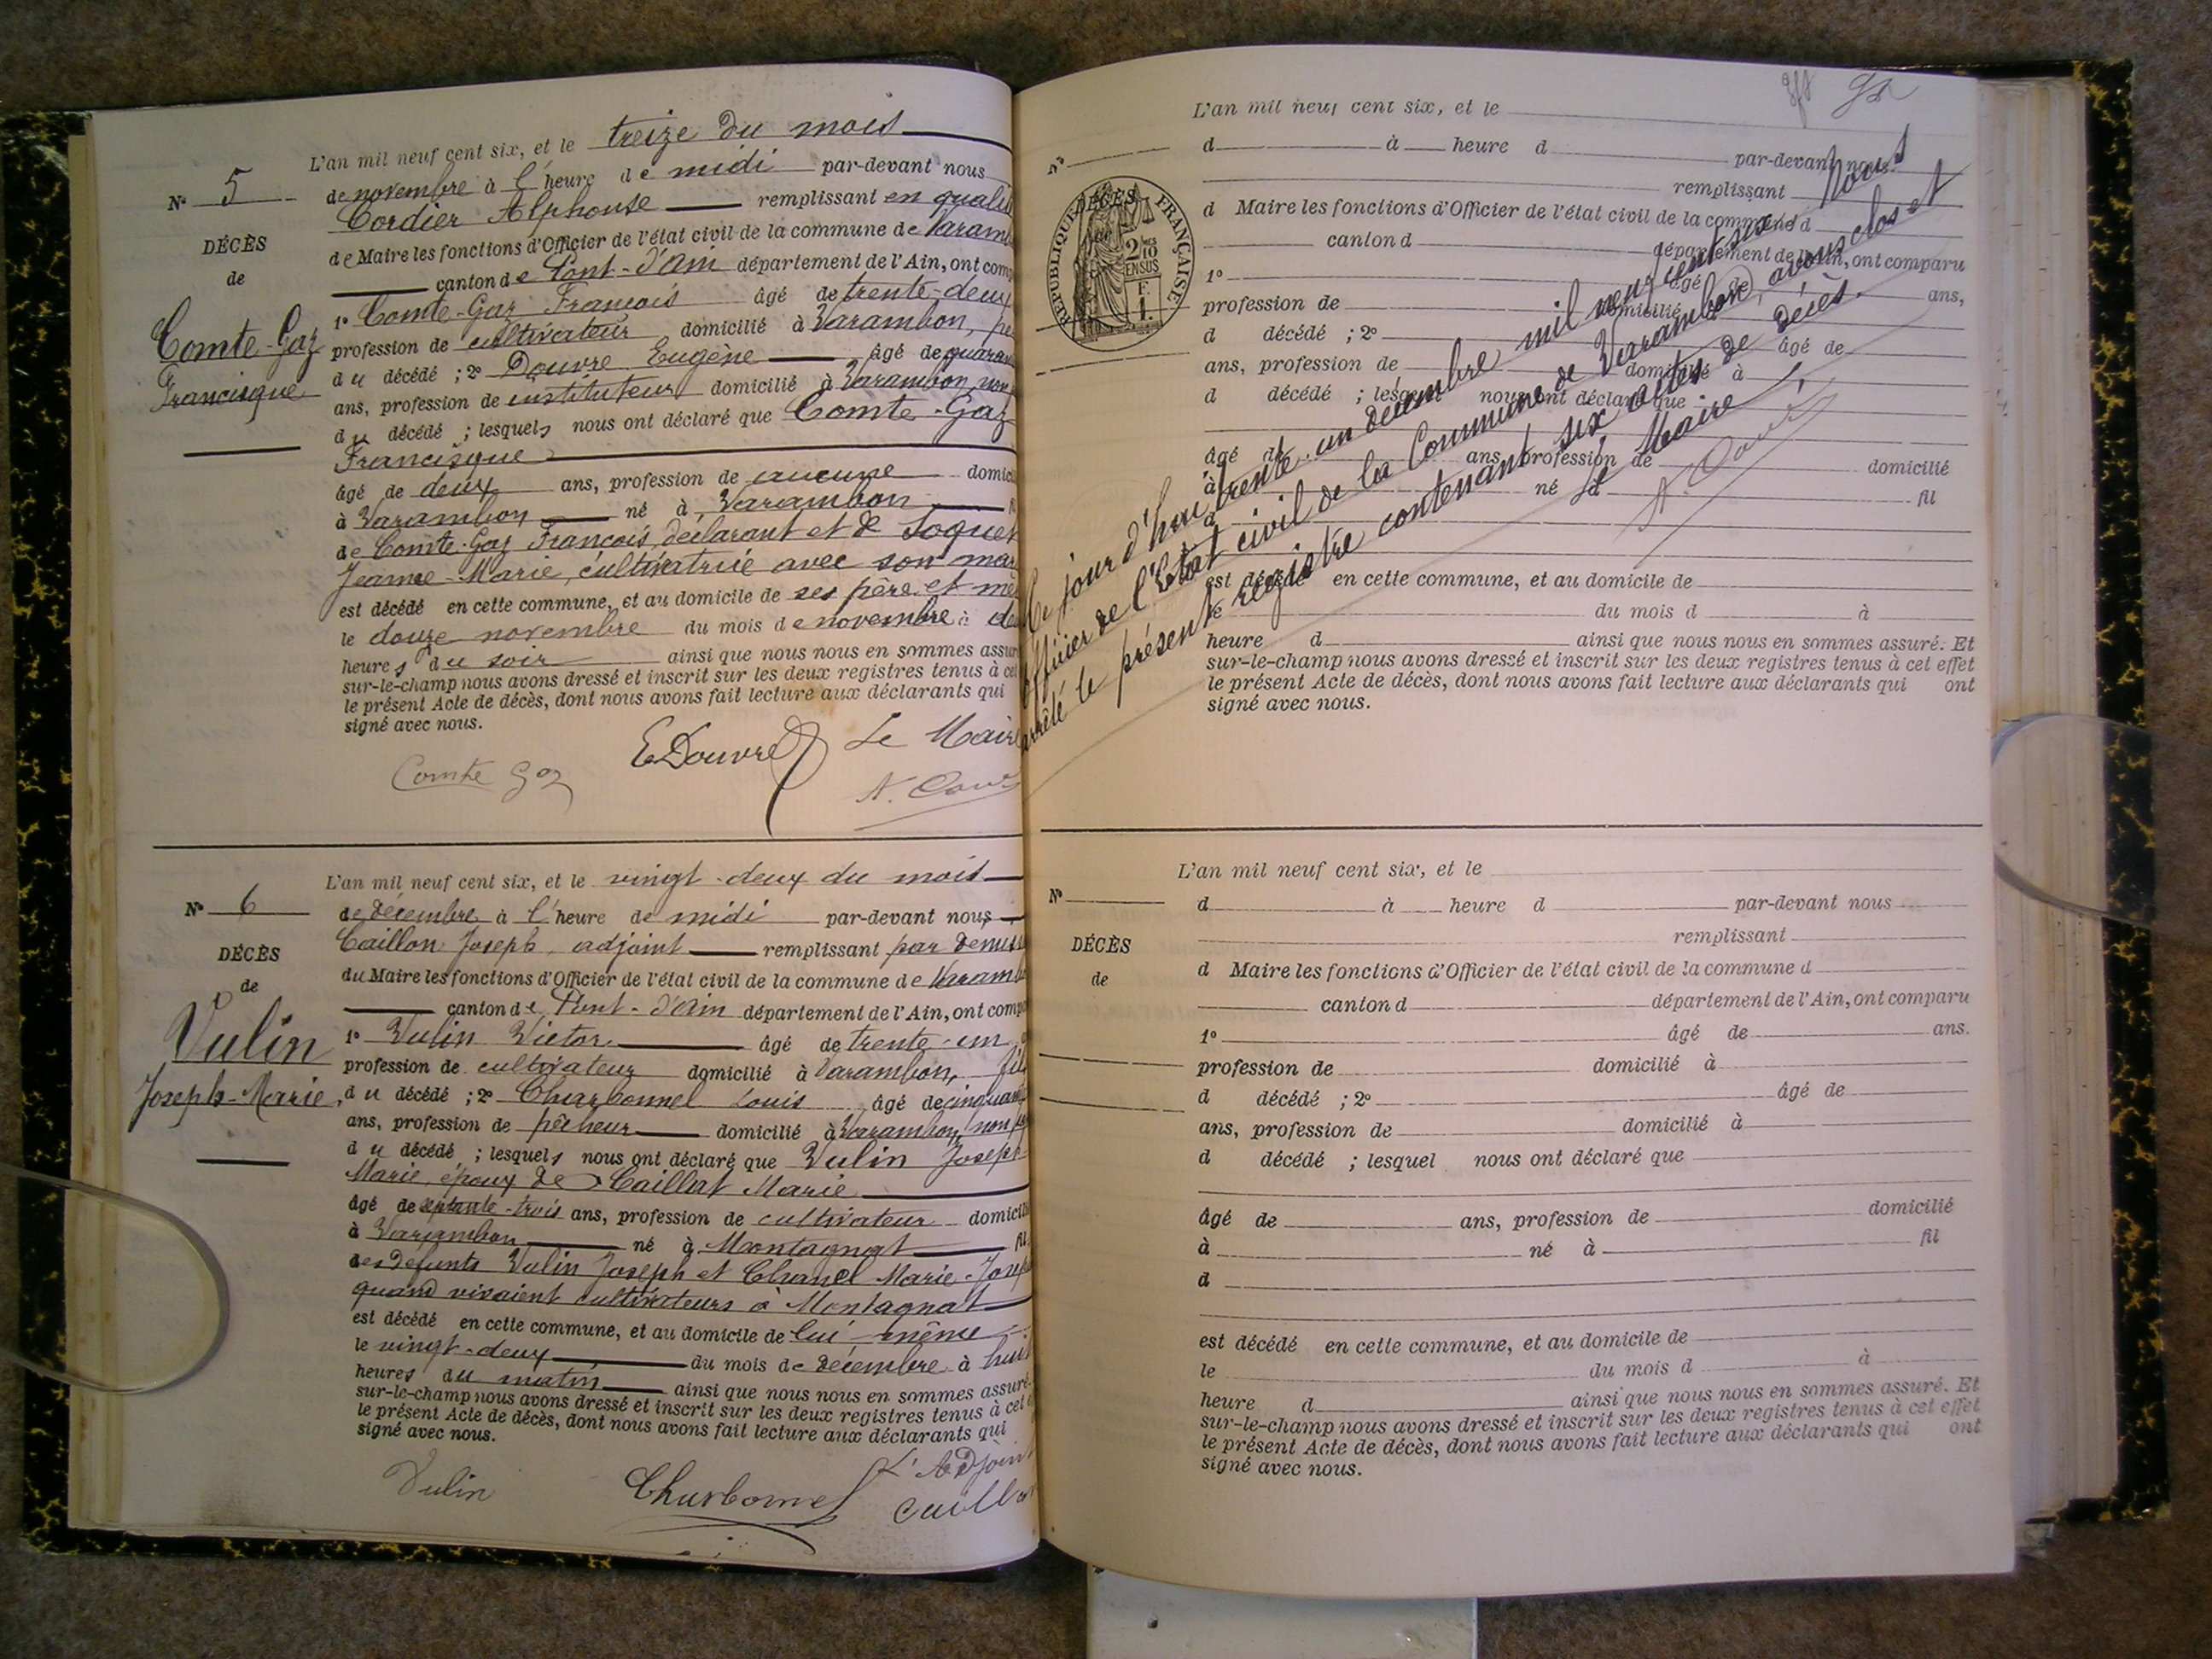 L'an mil neuf cent six, et le treize du mois
N° 5
de novembre à l'heure de midi par-devant nous
Cordier Alphonse remplissant en qualité
DÉCÈS
de Maire les fonctions d'Officier de l'état civil de la commune de Varamb
de
canton de Pont-d'Ain département de l'Ain, ont comp
1° Comte-Gaz François âgé de trente-deux
Comte-Gaz
profession de cultivateur domicilié à Varambon, pè
du décédé ; 2° Douvre Eugène âgé de quaran
Francisque
ans, profession de instituteur domicilié à Varambon, non
du décédé ; lesquels nous ont déclaré que Comte-Gaz
Francisque
âgé de deux ans, profession de aucune domici
à Varambon né à Varambon
de Comte-Gaz François, déclarant et de Joquet
Jeanne-Marie, cultivatrice avec son mar
est décédé en cette commune, et au domicile de ses père et mè
le douze novembre du mois de novembre à
heures du soir ainsi que nous nous en sommes assur
sur-le-champ nous avons dressé et inscrit sur les deux registres tenus à cet
le présent Acte de décès, dont nous avons fait lecture aux déclarants qui
signé avec nous.
Comte Gaz
E Douvre
Le Maire
L'an mil neuf cent six, et le vingt-deux du mois
N° 6
de décembre à l'heure de midi par-devant nous
Caillon Joseph, adjoint remplissant par
DÉCÈS
du Maire les fonctions d'Officier de l'état civil de la commune de Varamb
de
canton de Pont-d'Ain département de l'Ain, ont comp
Vulin
1° Vulin Victor âgé de trente-un
profession de cultivateur domicilié à Varambon, fils
Joseph-Marie,
du décédé ; 2° Charbonnel Louis âgé de cinquan
ans, profession de pêcheur domicilié à Varambon, non
du décédé ; lesquels nous ont déclaré que Vulin Joseph
Marie, époux de Caillat Marie
âgé de septante-trois ans, profession de cultivateur domicili
à Varambon né à Montagnat fil
des défunts Vulin Joseph et Chanel Marie-Josep
quand vivaient cultivateurs à Montagnat
est décédé en cette commune, et au domicile de lui-même
le vingt-deux du mois de décembre à huit
heures du matin ainsi que nous nous en sommes assuré.
sur-le-champ nous avons dressé et inscrit sur les deux registres tenus à cet
le présent Acte de décès, dont nous avons fait lecture aux déclarants qui
signé avec nous.
Vulin
Charbonnel
L'Adjoint
Caillon
L'an mil neuf cent six, et le
N°
d à heure d par-devant nous
remplissant
DÉCÈS
RÉPUBLIQUE FRANÇAISE
2/10 EN SUS
F. 1.
d Maire les fonctions d'Officier de l'état civil de la commune d
canton d département de l'Ain, ont comparu
1° âgé de ans,
profession de domicilié
d décédé ; 2° âgé de
ans, profession de domicilié à
d décédé ; lesquel nous ont déclaré que
âgé de ans, profession de domicilié
à né à fil
d
est décédé en cette commune, et au domicile de
le du mois d à
heure d ainsi que nous nous en sommes assuré. Et
sur-le-champ nous avons dressé et inscrit sur les deux registres tenus à cet effet
le présent Acte de décès, dont nous avons fait lecture aux déclarants qui ont
signé avec nous.
Ce jour d'hui trente-un décembre mil neuf cent six Nous
Officier de l'Etat civil de la Commune de Varambon, avons clos et
arrêté le présent registre contenant six actes de décès.
Le Maire,
L'an mil neuf cent six, et le
N°
d à heure d par-devant nous
remplissant
DÉCÈS
d Maire les fonctions d'Officier de l'état civil de la commune d
de
canton d département de l'Ain, ont comparu
1° âgé de ans.
profession de domicilié à
d décédé ; 2° âgé de
ans, profession de domicilié à
d décédé ; lesquel nous ont déclaré que
âgé de ans, profession de domicilié
à né à fil
d
est décédé en cette commune, et au domicile de
le du mois d à
heure d ainsi que nous nous en sommes assuré. Et
sur-le-champ nous avons dressé et inscrit sur les deux registres tenus à cet effet
le présent Acte de décès, dont nous avons fait lecture aux déclarants qui ont
signé avec nous.